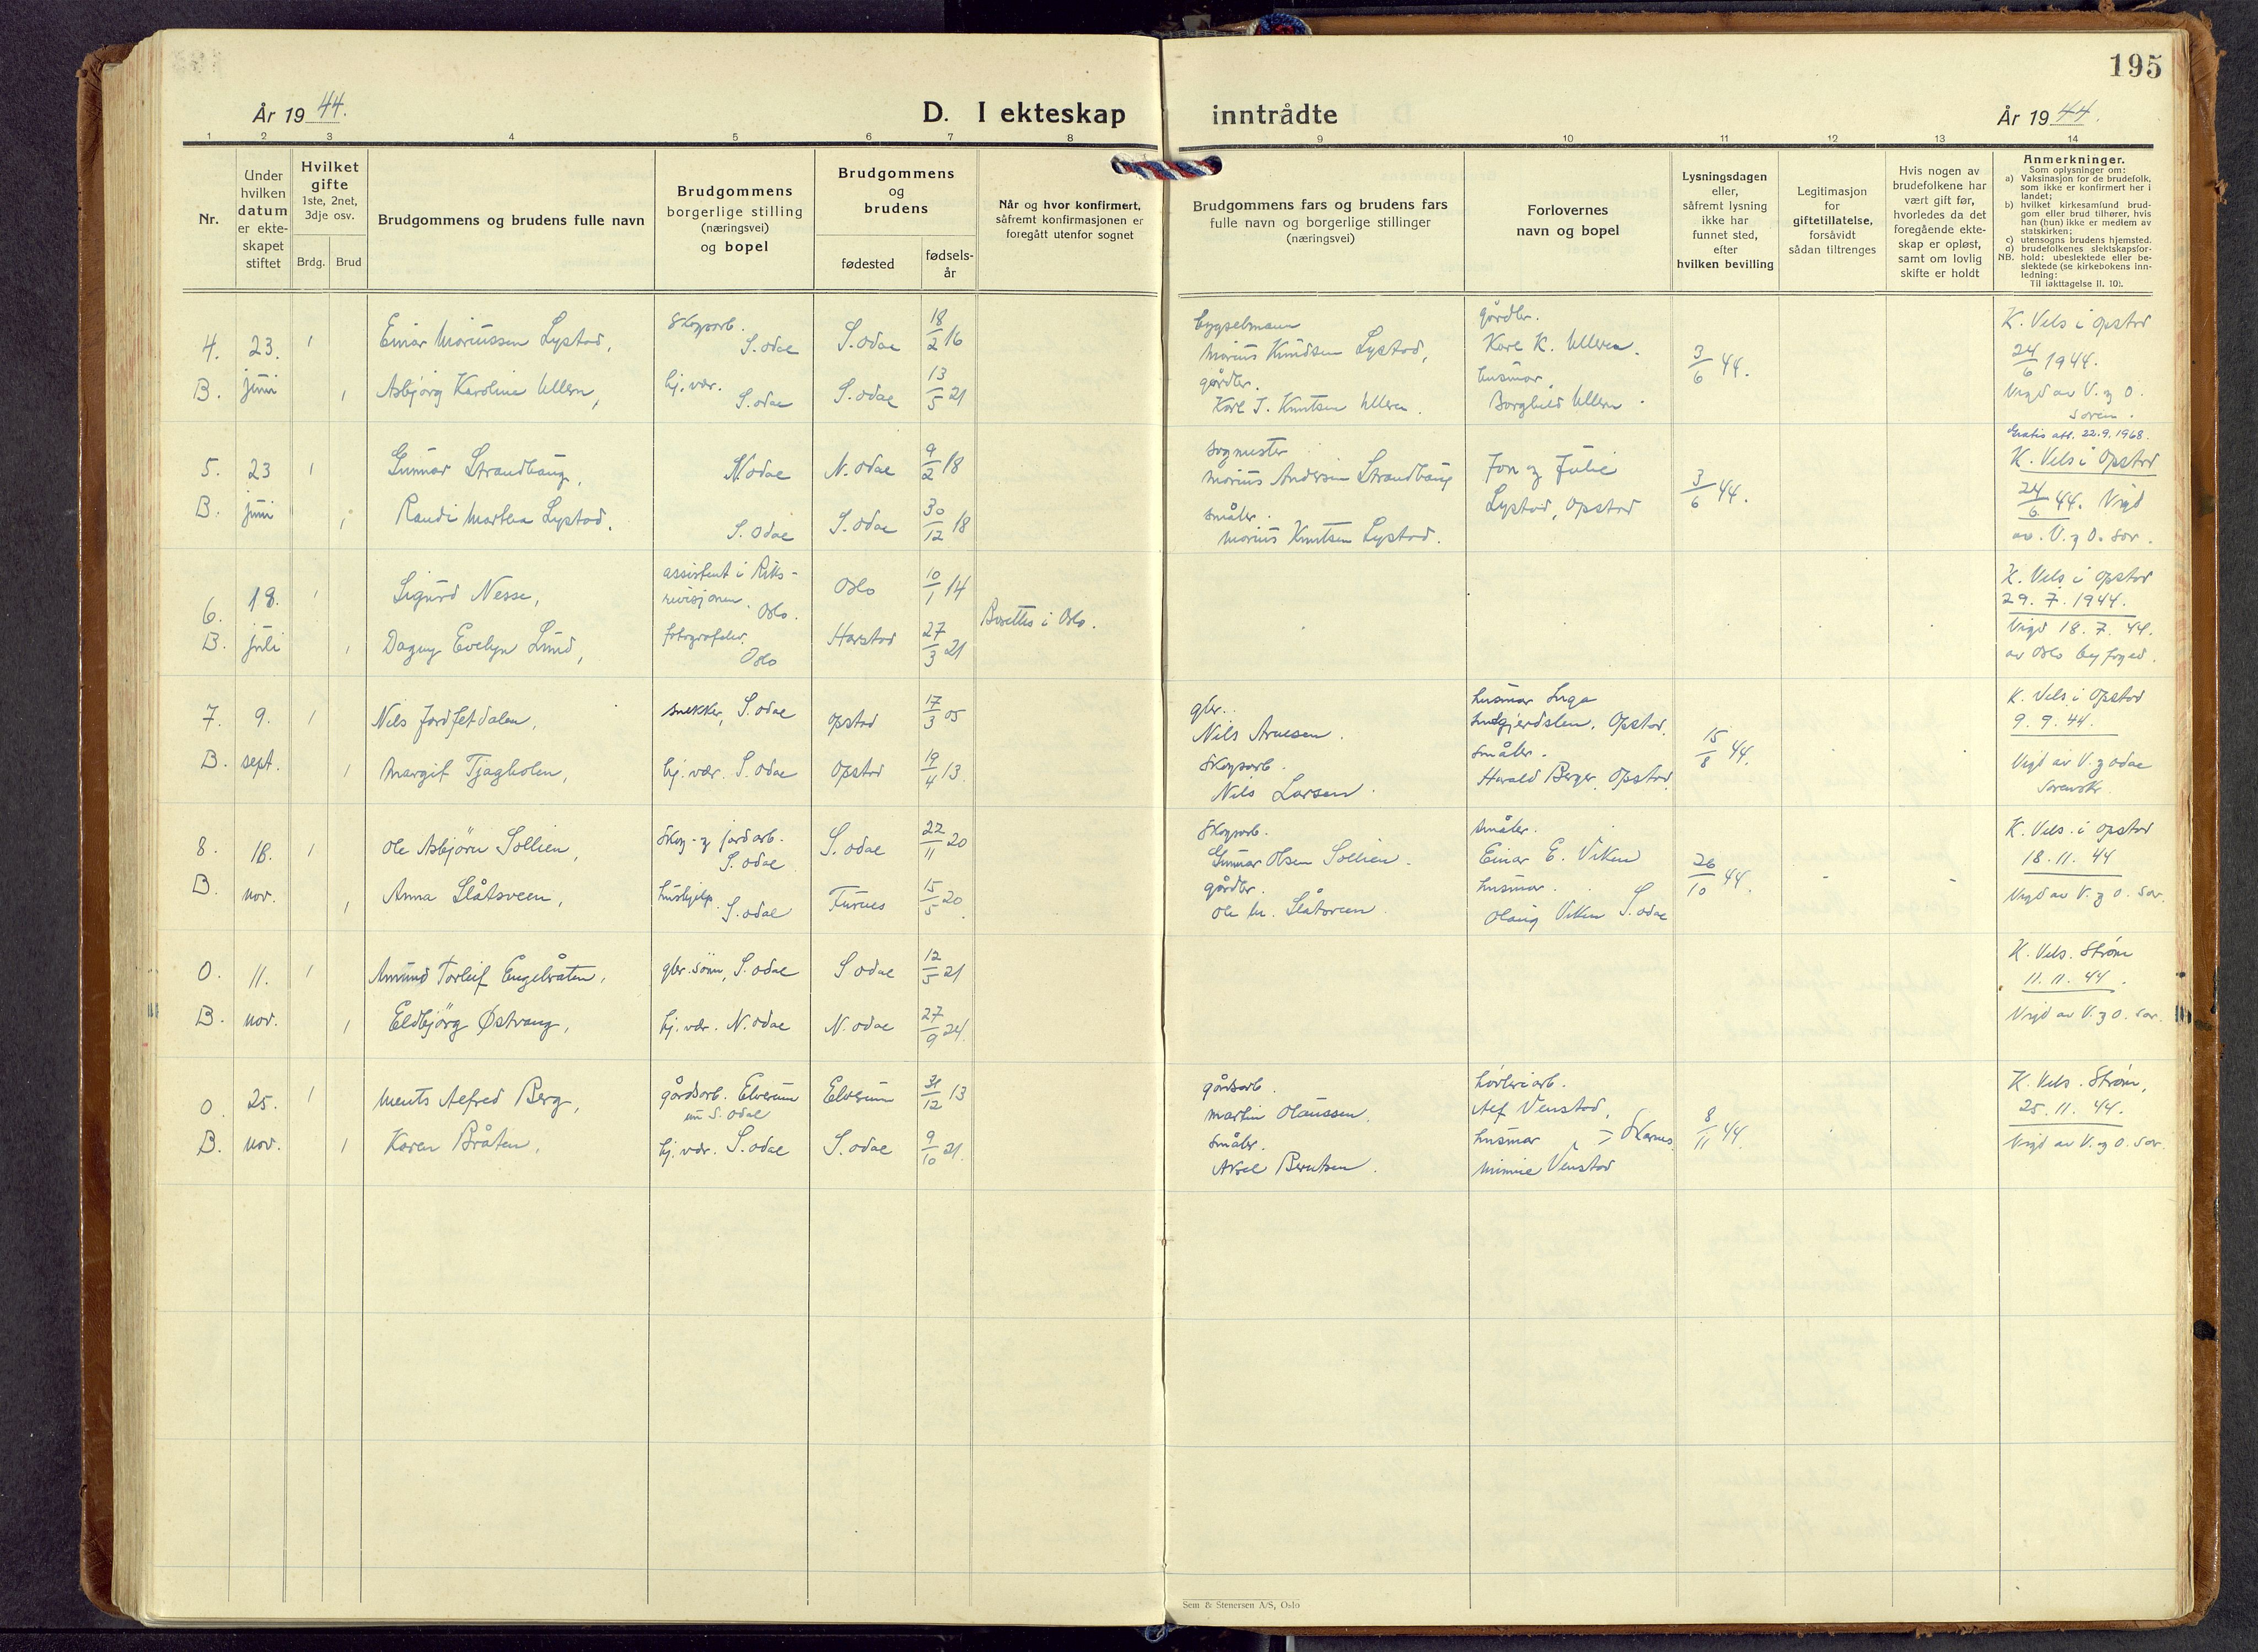 195
År 19 44.
D. I ekteskap inntrådte
År 19 44.
1 2 3 4 5 6 7 8 9 10 11 12 13 14
Nr.
Under hvilken datum er ekte-skapet stiftet
Hvilket gifte
1ste, 2net, 3dje osv.
Brdg. Brud
Brudgommens og brudens fulle navn
Brudgommens borgerlige stilling (næringsvei) og bopel
Brudgommens og brudens
fødested
fødsels-år
Når og hvor konfirmert, såfremt konfirmasjonen er foregått utenfor sognet
Brudgommens fars og brudens fars fulle navn og borgerlige stillinger (næringsvei)
Forlovernes navn og bopel
Lysningsdagen eller, såfremt lysning ikke har funnet sted, efter hvilken bevilling
Legitimasjon for giftetillatelse, forsåvidt sådan tiltrenges
Hvis nogen av brudefolkene har vært gift før, hvorledes da det foregående ekte-skap er opløst, samt om lovlig skifte er holdt
Anmerkninger.
Som oplysninger om:
a) Vaksinasjon for de brudefolk, som ikke er konfirmert her i landet;
b) hvilket kirkesamfund brud-gom eller brud tilhører, hvis han (hun) ikke er medlem av statskirken;
c) utensogns brudens hjemsted.
d) brudefolkenes slektskapsfor-
NB. hold: ubeslektede eller be-slektede (se kirkebokens inn-ledning:
Til iakttagelse II. 10).
4. 23. 1 Einar Mariussen Lystad, skogsarb. S. odal S. odal 18/2 16
B. juni 1 Asbjørg Karoline Ullern, hj. vær. S. odal S. odal 13/5 21
bygselmann
Marius Knudsen Lystad,
gårdbr.
Karl J. Knutsen Ulleren.
gårdbr.
Karl K. Ulleren.
husmor,
Borghild Ullern.
3/6 44.
K. Vels i Opstad
24/6 1944.
Vigd av V. og O.
soren.
5. 23 1 Gunnar Strandbaug, N. odal N. odal 9/2 18
B. juni 1 Randi Martea Lystad. S. odal S. odal 30/12 18
sagmester
Marius Andersen Strandbaug
småbr.
Marius Knutsen Lystad.
Jon og Julie
Lystad, Opstad
3/6 44.
Gratis att. 22.9.1968.
K. Vels i Opstad
24/6 44. Vigd
av. V. og O. sor.
6. 18. 1 Sigurd Nesse, assistent i Riks-revisjonen. Oslo. Oslo 10/1 14
B. juli 1 Dagny Evelyn Lund, Oslo Harstad 27/3 21
Bosettes i Oslo.
K. Vels i Opstad
29. 7. 1944.
Vigd 18. 7. 44.
av Oslo byfoged.
7. 9. 1 Nils Jordfetdalen, snekker, S. odal Opstad 17/3 05
B. sept. 1 Margit Tjagholen, hj. vær. S. odal Opstad 19/4 13.
gbr.
Nils Arnesen.
skogsarb.
Nils Larsen.
husmor Inga
Opstad.
småbr.
Harald Berger, Opstad.
15/8 44.
K. Vels i Opstad
9. 9. 44.
Vigd av V. og odal
sorenskr.
8. 18. 1 Ole Asbjörn Sollien, skog- og jordarb. S. odal S. odal 22/11 20
B. nov. 1 Anna Slåtsveen, hushjelp. S. odal Furnes 15/5 20
skogsarb.
Gunnar Olsen Sollien.
gårdbr.
Ole M. Slåtsveen.
småbr.
Einar E. Viken
husmor.
Olaug Viken S. odal
26/10 44.
K. Vels. i Opstad
18. 11. 44
Vigd av V. og O. sor.
O. 11. 1 Amund Torleif Engelråten, gbr. sønn, S. odal S. odal 12/5 21
B. nov. 1 Eldbjörg Østvang, hj. vær. N. odal N. odal 27/9 24.
K. Vels. Strøm
11. 11. 44.
Vigd av V. og O. sor.
O. 25. 1 Ments Alfred Berg, gårdsarb. Elverum nu S. odal Elverum 31/12 13
B. nov. 1 Karen Bråten, hj. vær. S. odal S. odal 9/10 21.
gårdsarb.
Martin Olaussen,
småbr.
Aksel Berntsen.
høvleriarb.
Alf Venstad,
husmor
Skarnes.
Minnie Venstad
8/11 44.
K. Vels. Strøm,
25. 11. 44.
Vigd av V. og O. sor.
Sem & Stenersen A/S, Oslo